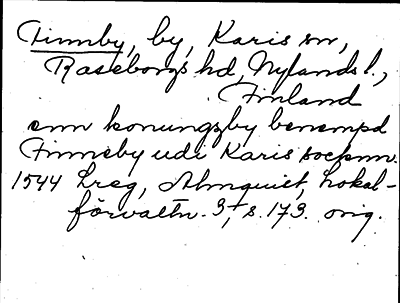 Finneby, by, Karis sn,
Raseborgs hd, Nylands l.,
Finland
enn konungzby benempd
Finneby udi Karis socknn.
1544 Lreg, Almquist, Lokal-
förvaltn. 3, s. 173. orig.